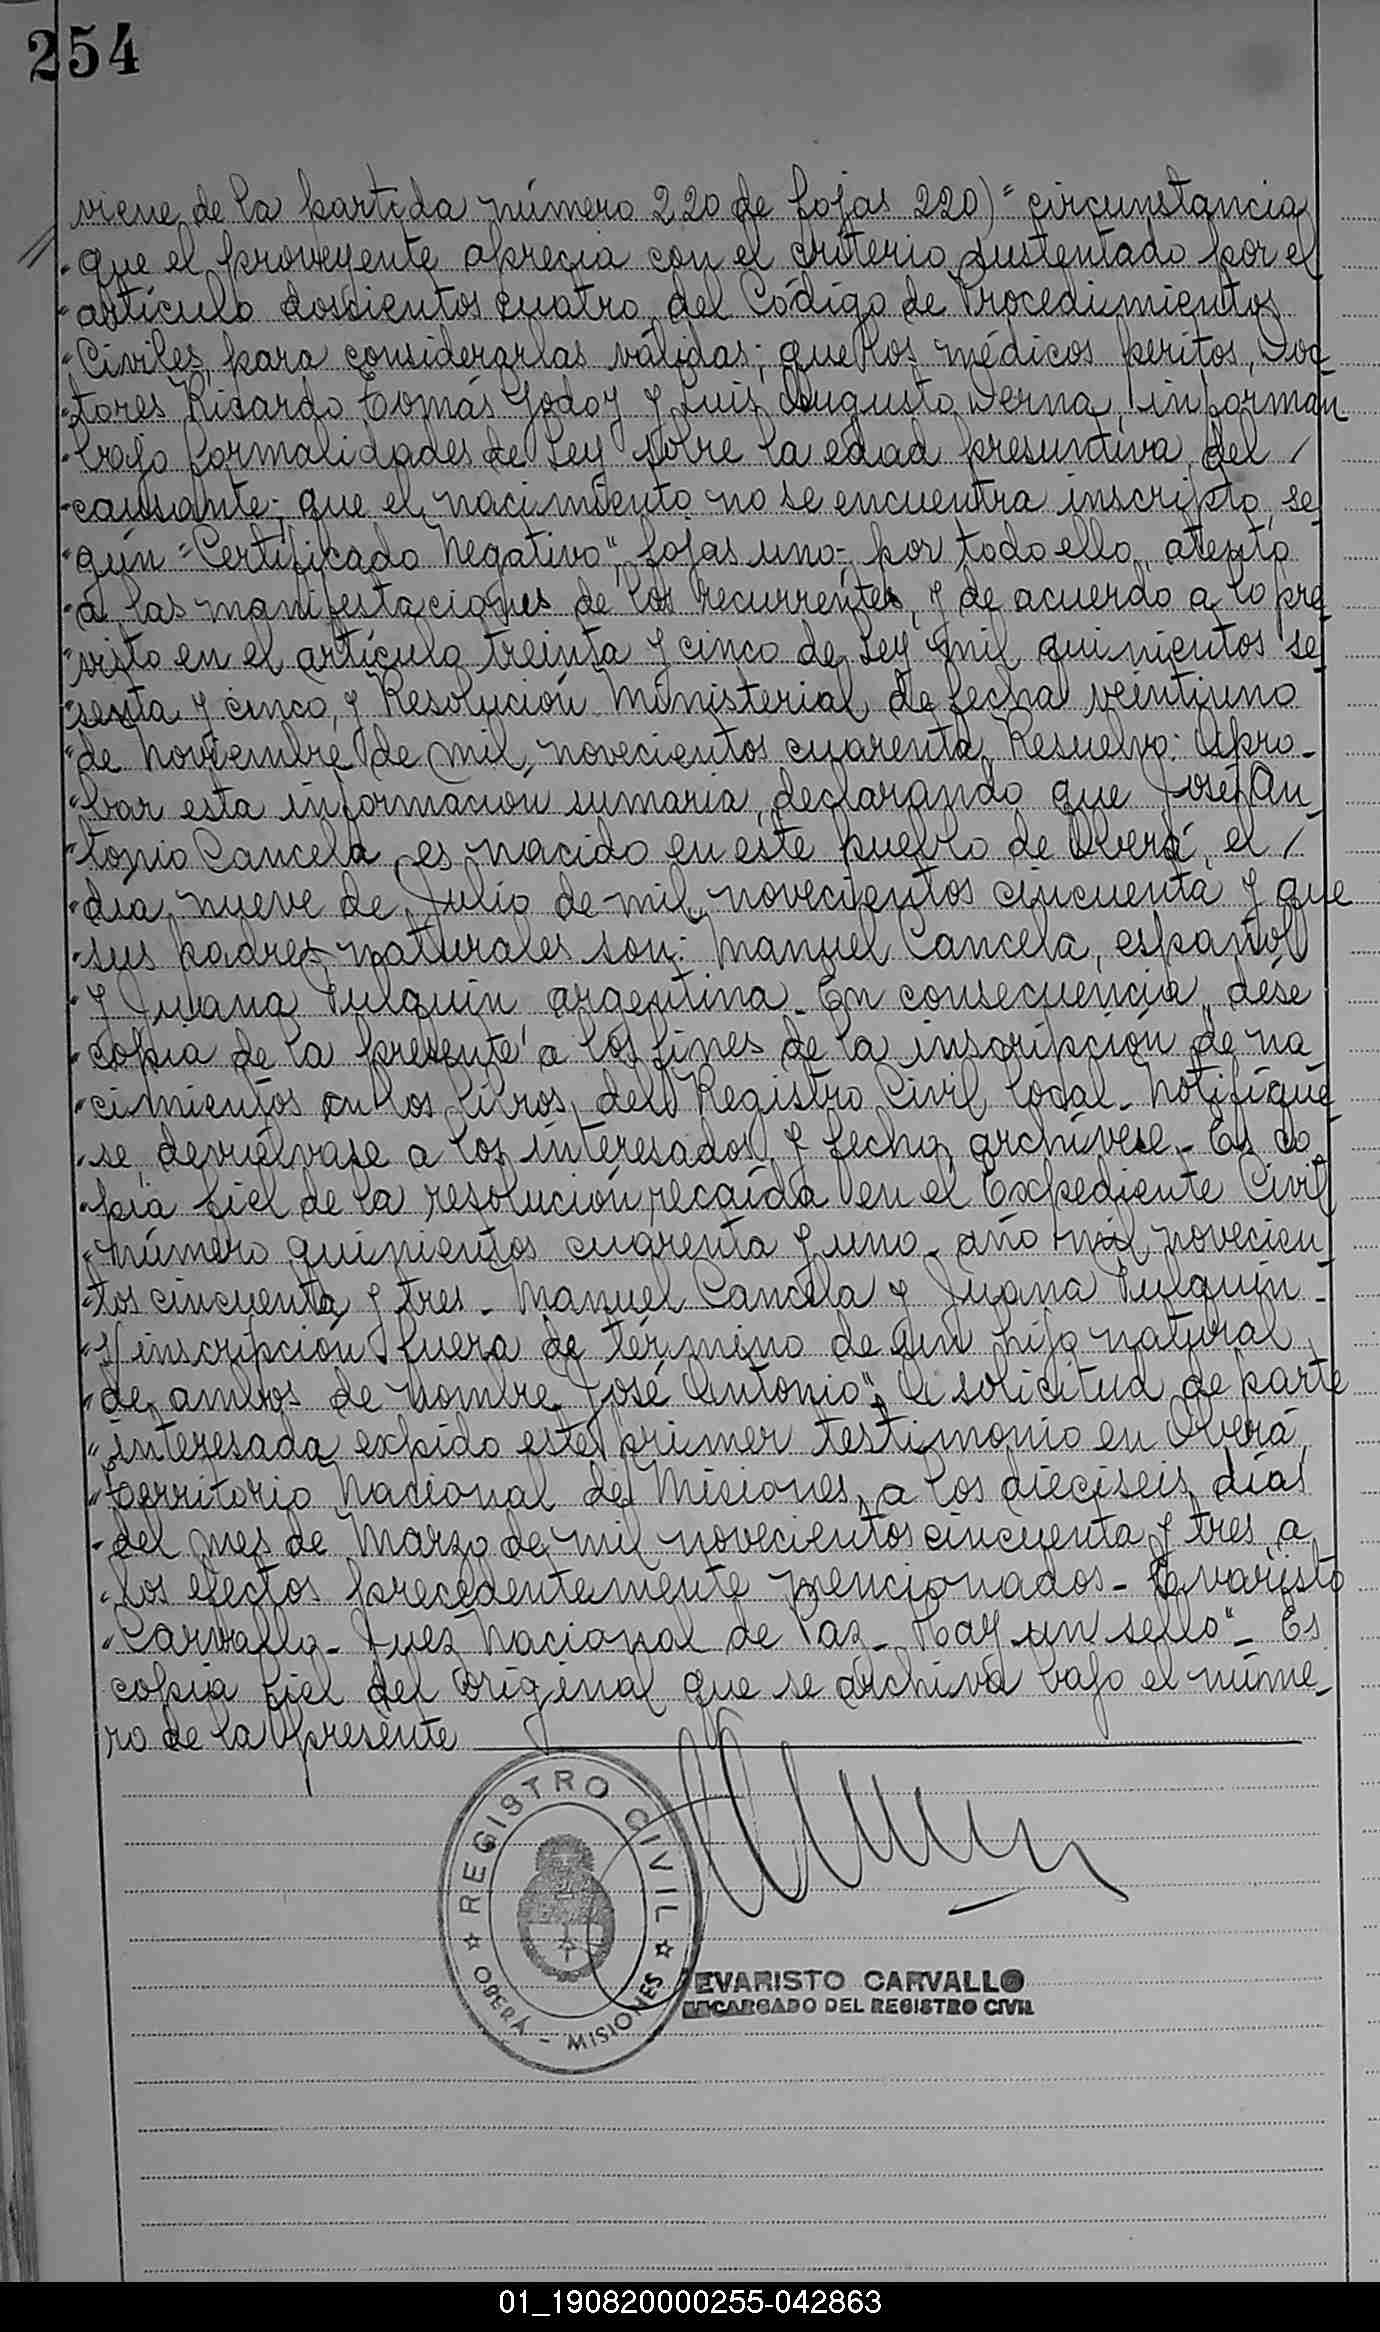 254
viene de la partida número 220 de fojas 220)" circunstancia
" que el proveyente aprecia con el criterio sustentado por el
" artículo doscientos cuatro del Código de Procedimientos
" Civiles, para considerarlas válidas; que los médicos peritos, Doc
" tores Ricardo Tomás Godoy y Luis Augusto Derna, informan
" bajo formalidades de Ley sobre la edad presuntiva del /
" causante; que el nacimiento no se encuentra inscripto, se
" gún "Certificado Negativo", fojas uno; por todo ello, atento
" a las manifestaciones de los recurrentes, y de acuerdo a lo pre
" visto en el artículo treinta y cinco de Ley mil quinientos se
" senta y cinco, y Resolución Ministerial de fecha veintiuno
" de Noviembre de mil novecientos cuarenta, Resuelvo: Apro-
" bar esta información sumaria, declarando que José An
" tonio Cancela, es nacido en este pueblo de Oberá, el /
" día nueve de Julio de mil novecientos cincuenta y que
" sus padres naturales son: Manuel Cancela, español
" y Juana Pulquin, argentina. En consecuencia, dése
" copia de la presente a los fines de la inscripción de na
" cimientos en los libros del Registro Civil local. Notifíque
" se, devuélvase a los interesados y fecho, archívese. Es co
" pia fiel de la resolución recaída en el Expediente Civil
" número quinientos cuarenta y uno - año mil novecien
" tos cincuenta y tres - Manuel Cancela y Juana Pulquin -
" s/ inscripción fuera de término de un hijo natural
" de ambos de nombre José Antonio". A solicitud de parte
" interesada expido este primer testimonio en Oberá,
" Territorio Nacional de Misiones, a los dieciseis días
" del mes de Marzo de mil novecientos cincuenta y tres, a
" los efectos precedentemente mencionados - Evaristo
" Carvallo - Juez Nacional de Paz - Hay un sello" - Es
copia fiel del original que se archiva bajo el núme-
ro de la presente
REGISTRO CIVIL
OBERÁ - MISIONES
EVARISTO CARVALLO
ENCARGADO DEL REGISTRO CIVIL
01_190820000255-042863